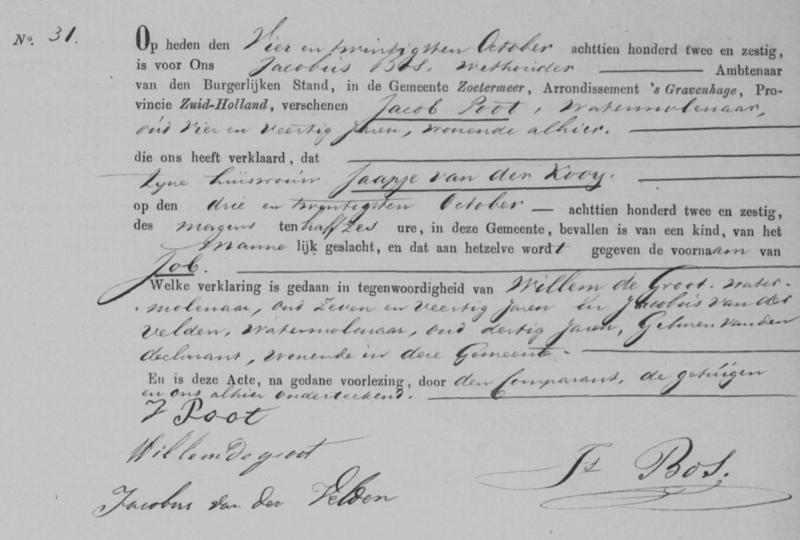 No. 31.
Op heden den Vier en twintigsten October achttien honderd twee en zestig,
is voor Ons Jacobus Bos, Wethouder Ambtenaar
van den Burgerlijken Stand, in de Gemeente Zoetermeer, Arrondissement 's Gravenhage, Pro-
vincie Zuid-Holland, verschenen Jacob Poot, Watermolenaar,
oud Vier en Veertig Jaren, wonende alhier.
die ons heeft verklaard, dat
zyne huisvrouw Jaapje van der Kooy.
op den drie en twintigsten October achttien honderd twee en zestig,
des morgens ten half zes ure, in deze Gemeente, bevallen is van een kind, van het
Manne lijk geslacht, en dat aan hetzelve wordt gegeven de voornaam van
Job.
Welke verklaring is gedaan in tegenwoordigheid van Willem de Groot. Water-
molenaar, oud Zeven en Veertig Jaren en Jacobus van der
Velden, Watermolenaar, oud dertig Jaren, Geburen van den
declarant, wonende in deze Gemeente.
En is deze Acte, na gedane voorlezing, door den Comparant, de getuigen
en ons alhier onderteekend.
J Poot
Willem De groot
Js Bos.
Jacobus van der Velden